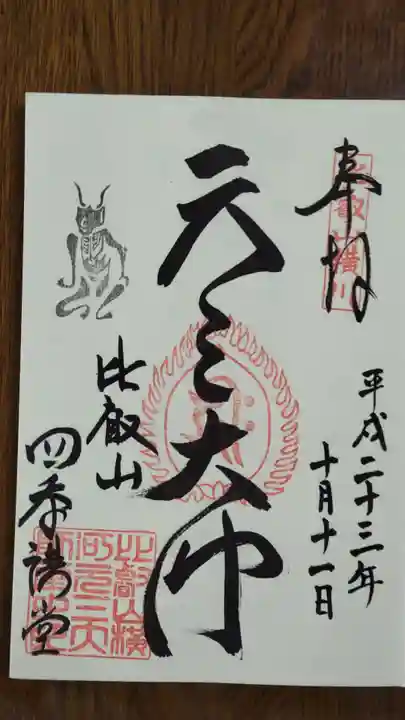 奉拝
比叡山横川
平成二十三年
十月十一日
元三大師
比叡山
四季講堂